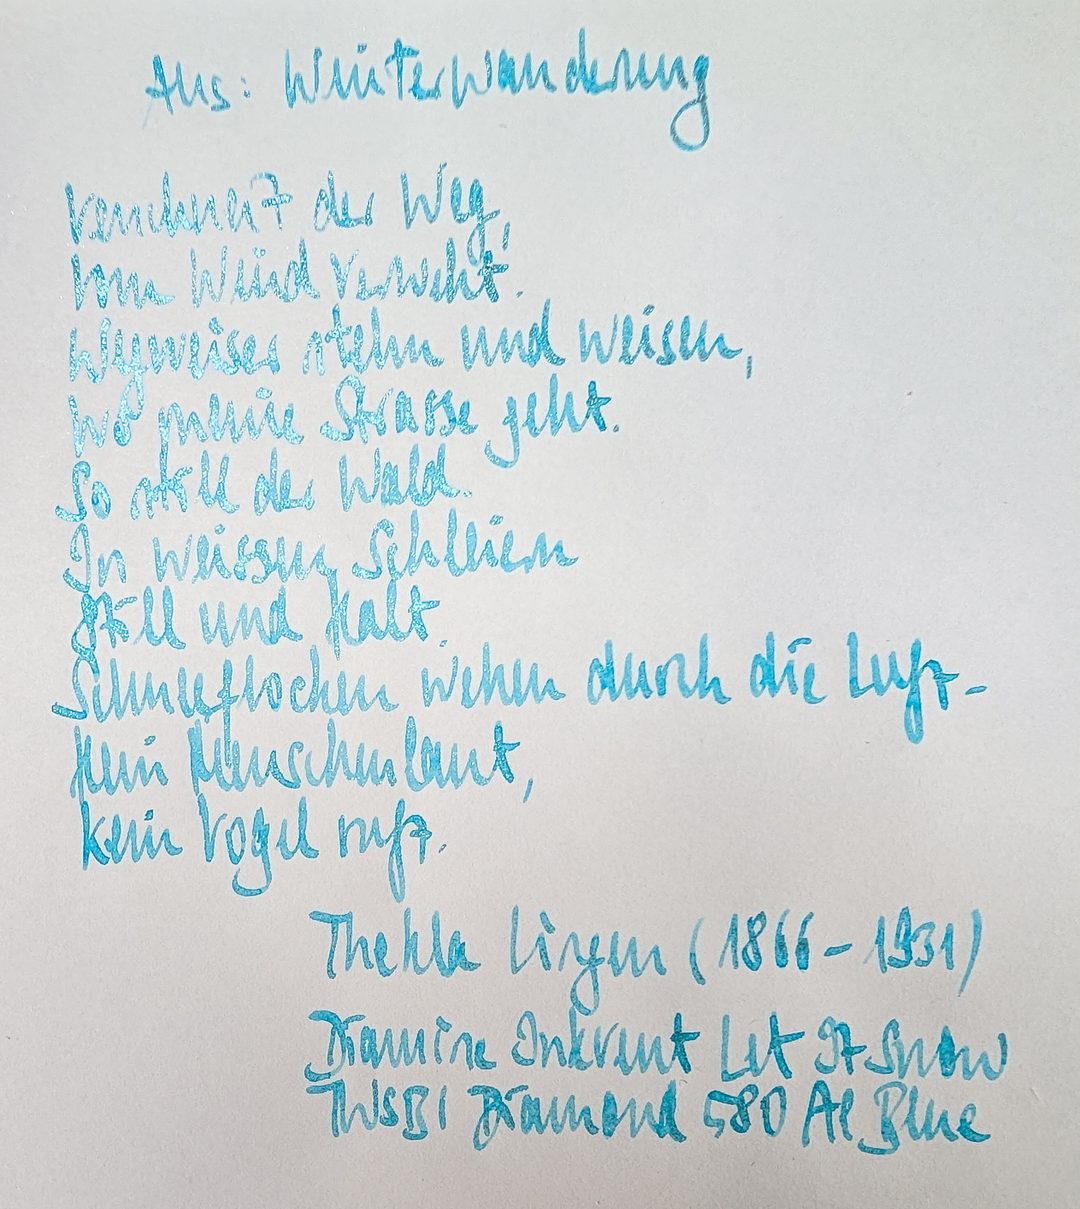 Aus: Winterwanderung
Verschneit der Weg,
vom Wind verweht.
Wegweiser stehn und weisen,
wo meine Strasse geht.
So still der Wald.
In weissen Schleiern
still und kalt.
Schneeflocken wehen durch die Luft -
kein Menschenlaut,
kein Vogel ruft.
Thekla Lingen (1866 - 1931)
Diamine Inkvent Let It Snow
TWSBI Diamond 580 Al Blue